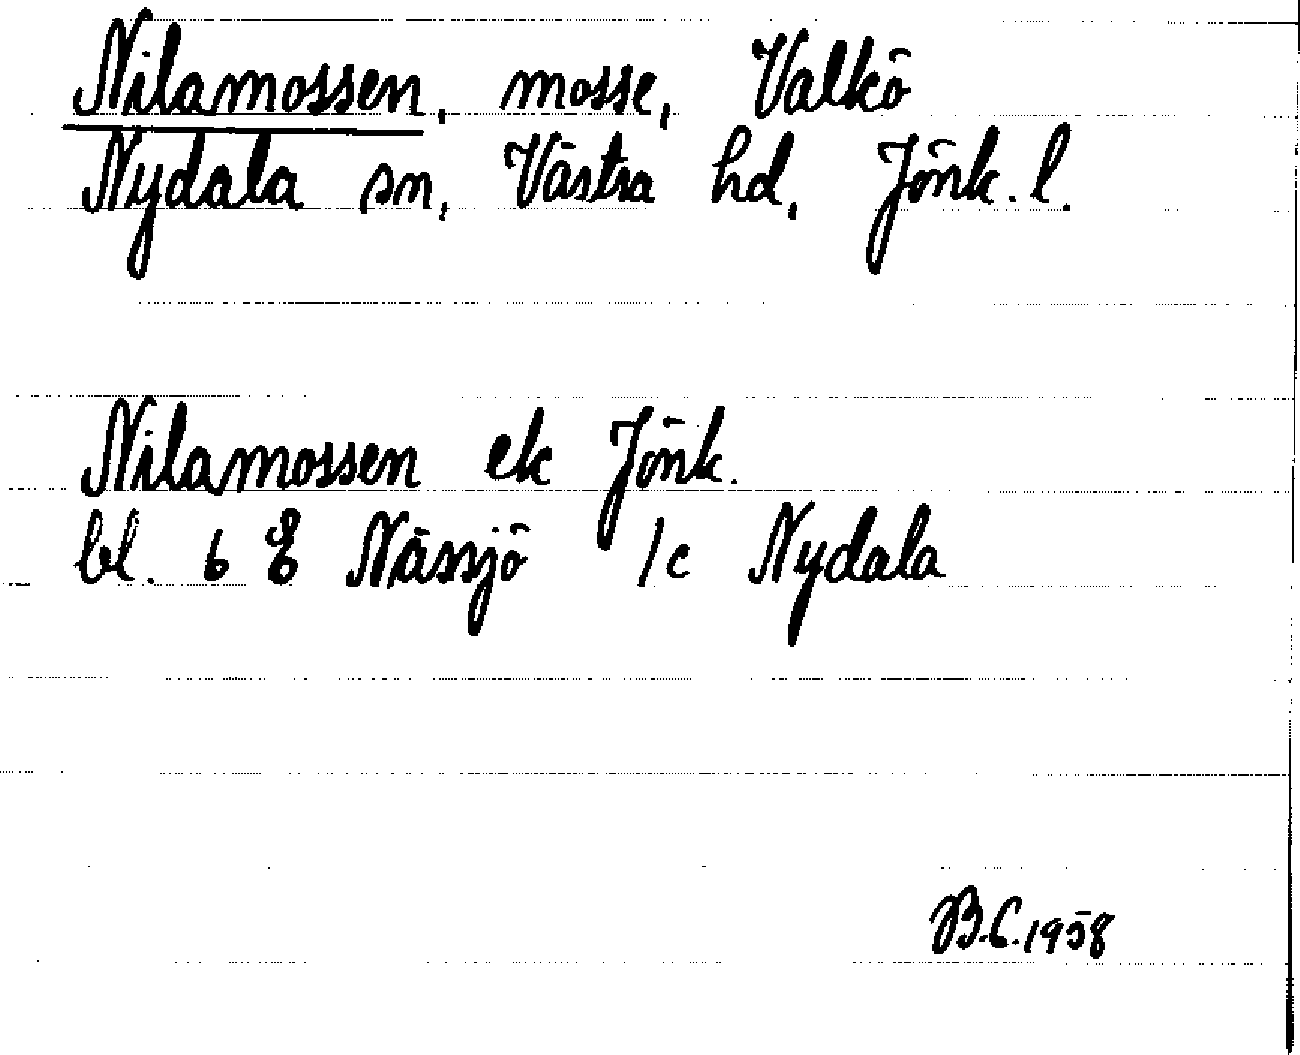 Nilamossen, mosse, Valkö
Nydala sn, Västra hd, Jönk. l.
Nilamossen ek Jönk.
bl. 6 E Nässjö /c Nydala
B.C. 1958